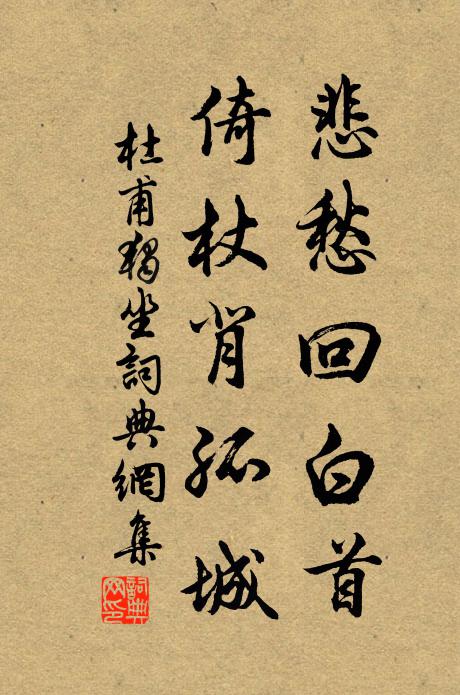 悲愁回白首
倚杖背孤城
杜甫獨坐詞典網集
詞典
网印